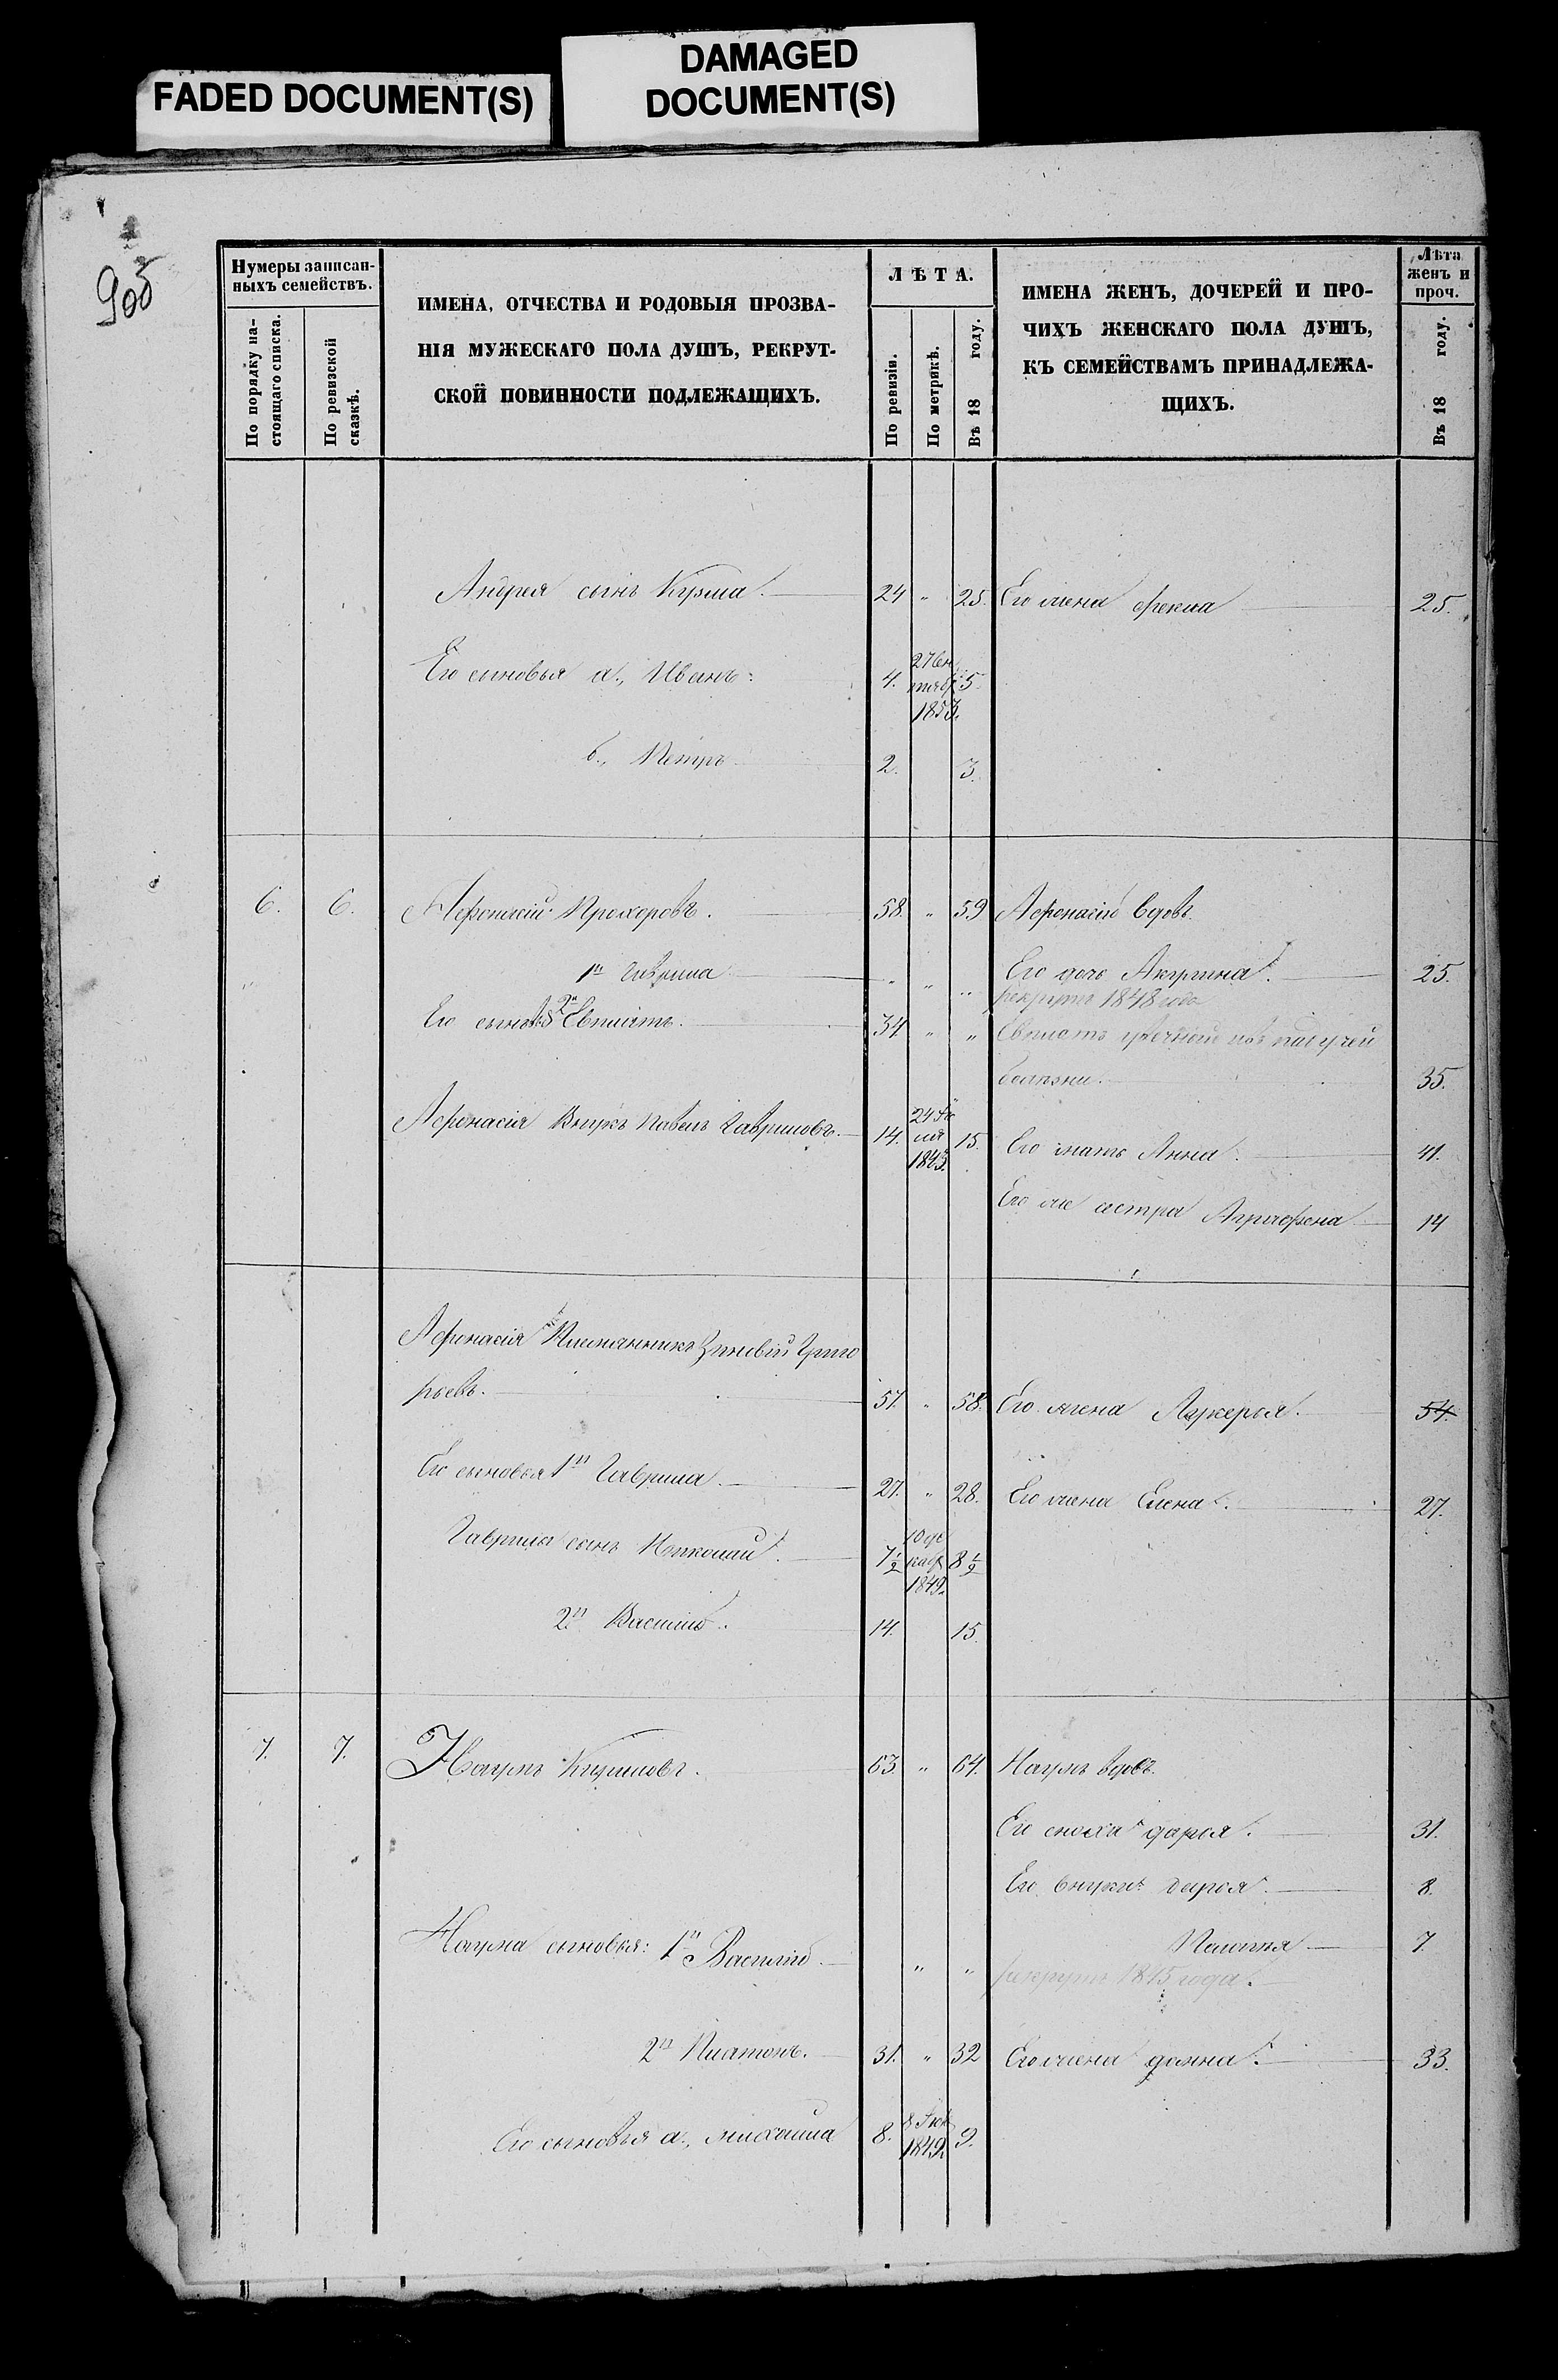 FADED DOCUMENT(S)
DAMAGED
DOCUMENT(S)
Нумеры записан-
ныхъ семействъ.
По порядку на-
стоящаго списка.
По ревизской
сказкѣ.
ИМЕНА, ОТЧЕСТВА И РОДОВЫЯ ПРОЗВА-
НІЯ МУЖЕСКАГО ПОЛА ДУШЪ, РЕКРУТ-
СКОЙ ПОВИННОСТИ ПОДЛЕЖАЩИХЪ.
ЛѢТА.
По ревизіи.
По метрикѣ.
Въ 18 году.
ИМЕНА ЖЕНЪ, ДОЧЕРЕЙ И ПРО-
ЧИХЪ ЖЕНСКАГО ПОЛА ДУШЪ,
КЪ СЕМЕЙСТВАМЪ ПРИНАДЛЕЖА-
ЩИХЪ.
Лѣта
женъ и
проч.
Въ 18 году.
Андрея сынъ Кузма. 24 " 25. Его жена Фекла 25.
Его сыновья а., Иванъ. 4. 5
1853.
б., Петръ 2. 3.
6. 6. Афонасій Прохоровъ. 58. " 59 Афонасій вдовъ.
1й Гаврила " " " Его дочь Акулина. 25.
рекрутъ 1848 года
Его сынъ 2й Евплатъ. 34 " " Евплатъ увѣчный въ падучей
болѣзни. 35.
Афонасія внукъ Павелъ Гавриловъ. 14. 15. Его мать Анна. 41.
1843.
Его же сестра Аграфена 14
Афонасія Племянникъ Зиновій Григо
рьевъ. 57. " 58. Его жена Лукерья. 54.
Его сыновья 1й Гаврила. 27. " 28. Его жена Елена. 27.
Гаврилы сынъ Николай. 7½ 10 де
кабр
1849. 8½
2й Василій. 14. 15.
7. 7. Наумъ Кириловъ. 63. " 64. Наумъ вдовъ.
Его сноха Дарья. 31.
Его внуки Дарья. 8.
Наума сыновья: 1й Василій. " " Пелагея 7.
рекрутъ 1845 года.
2й Платонъ. 31. " 32 Его жена Домна. 33.
Его сыновья а., Михайла 8. 8 1849. 9.